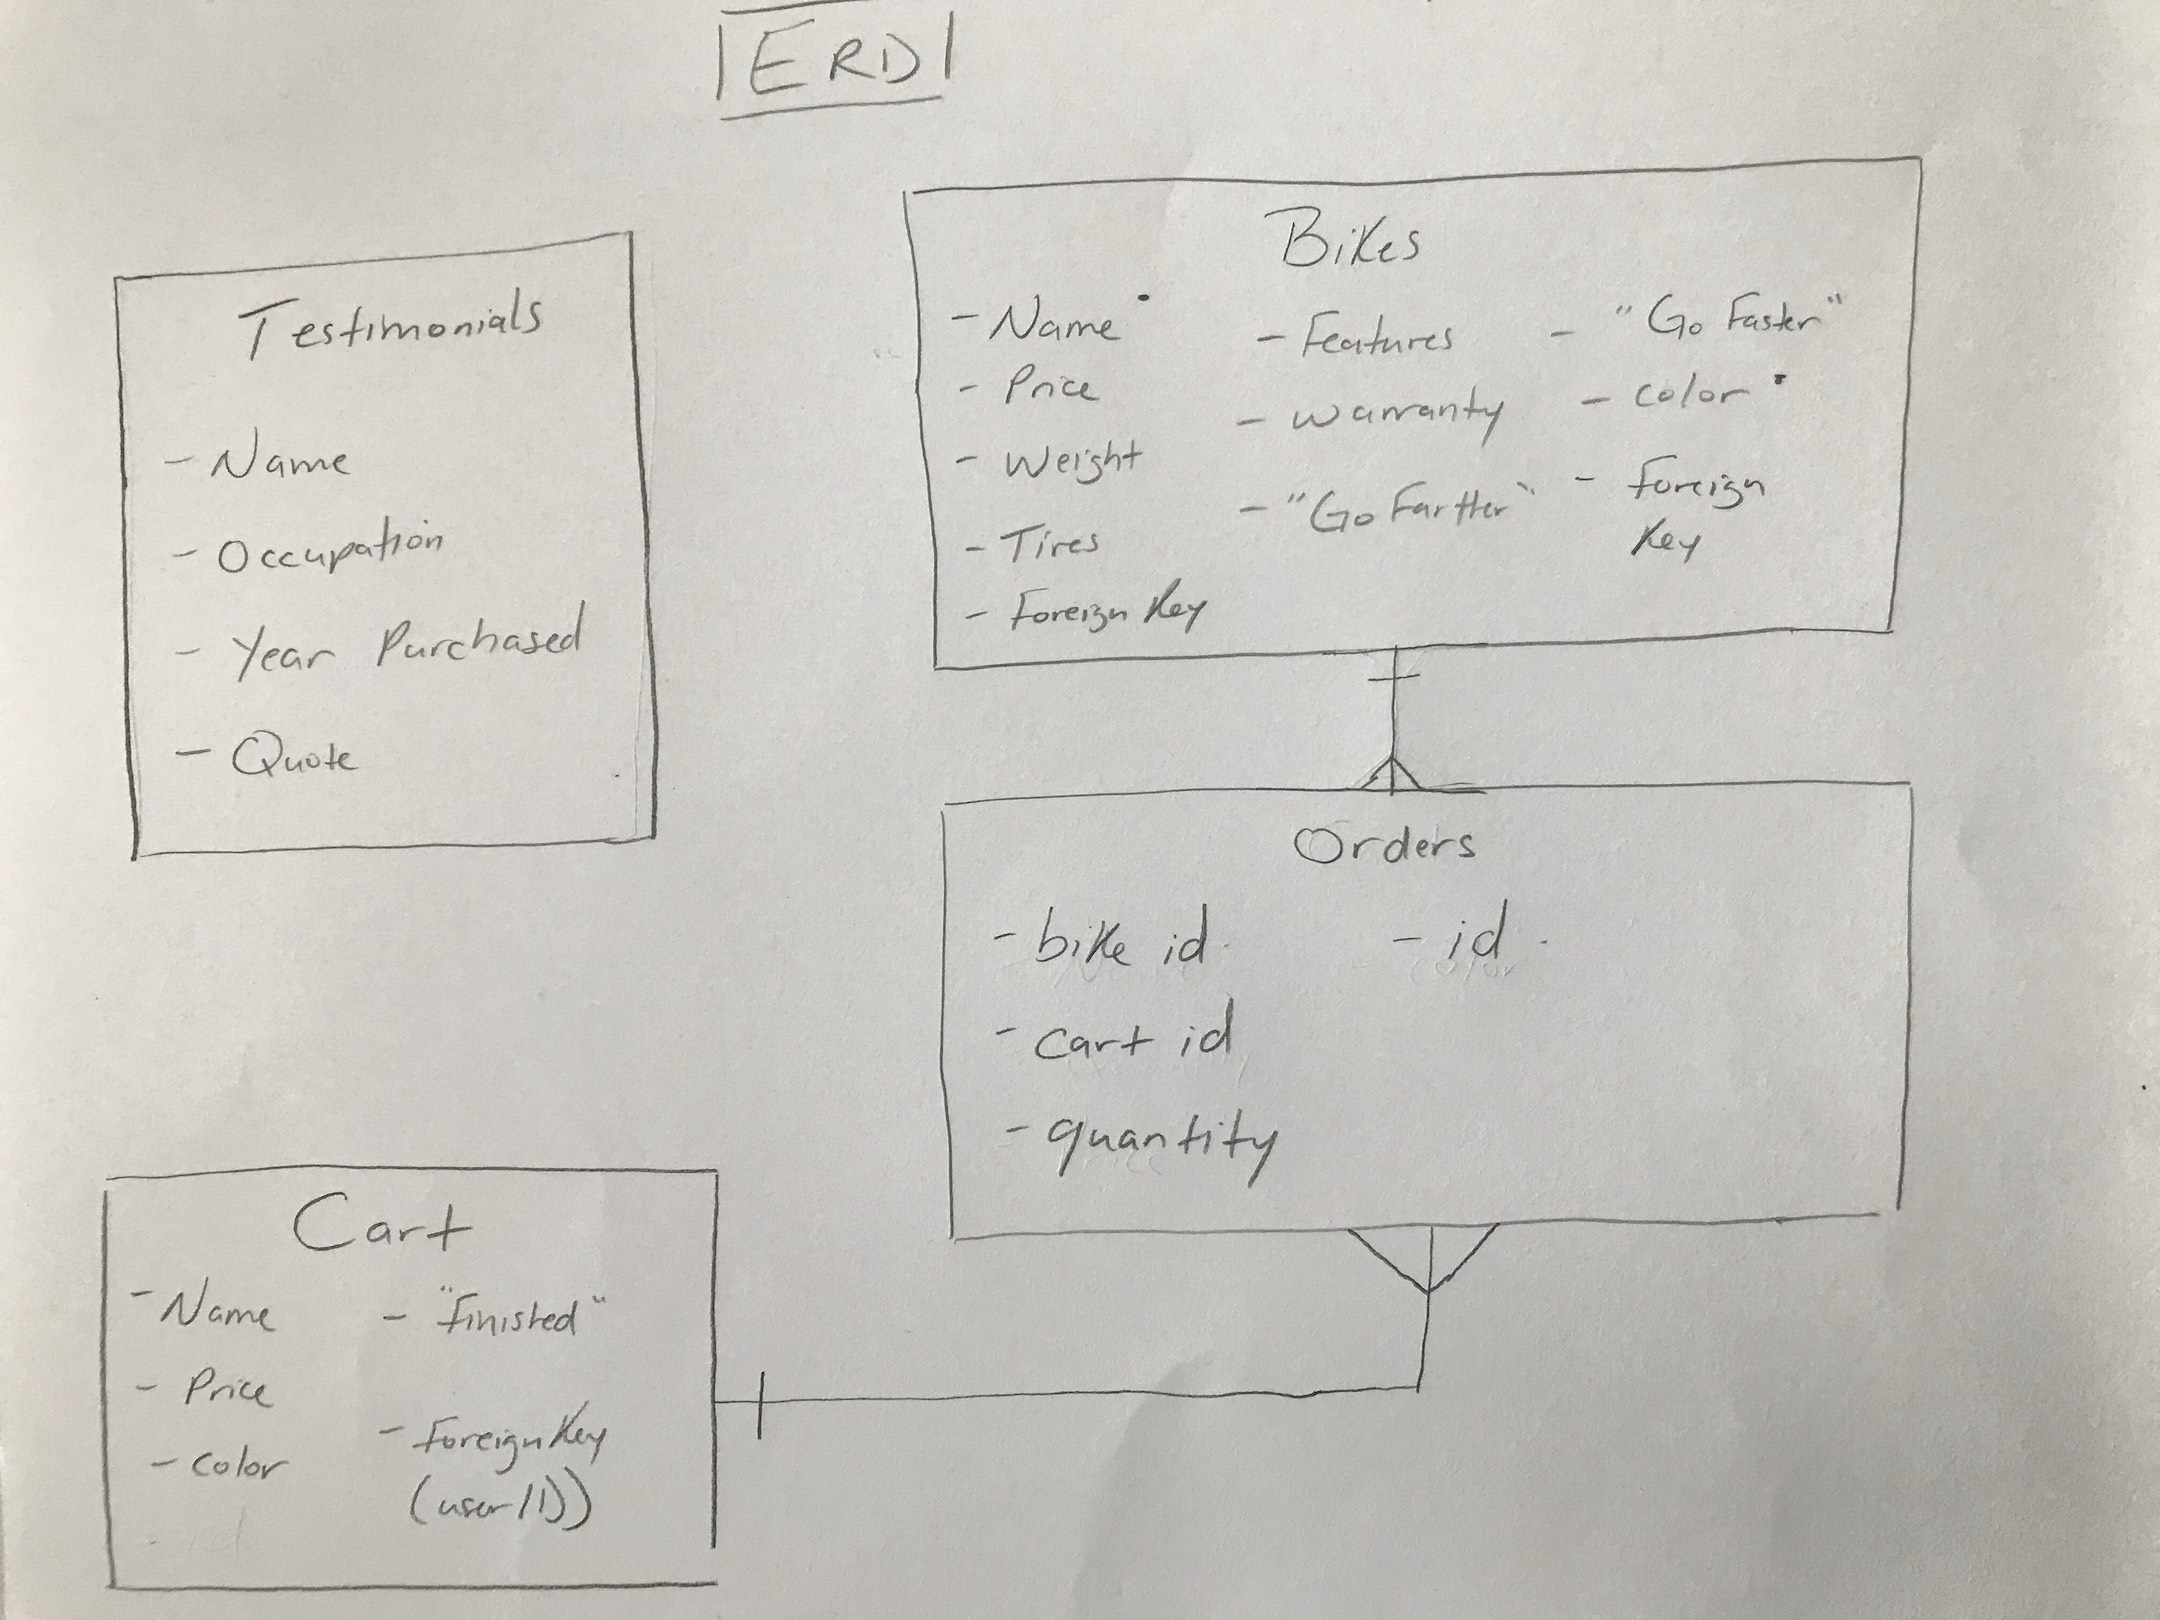 ERD
Testimonials
- Name
- Occupation
- Year Purchased
- Quote
Bikes
- Name
- Price
- Weight
- Tires
- Foreign Key
- Features
- Warranty
- "Go Farther"
- "Go Faster"
- Color
- Foreign
Key
Orders
- bike id
- cart id
- quantity
- id
Cart
- Name
- Price
- Color
- id
- "Finished"
- Foreign Key
(user ID)